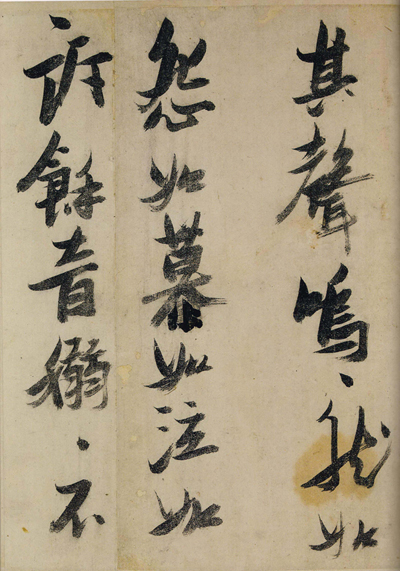 其聲嗚々然如
怨如慕如泣如
訴餘音嫋々不